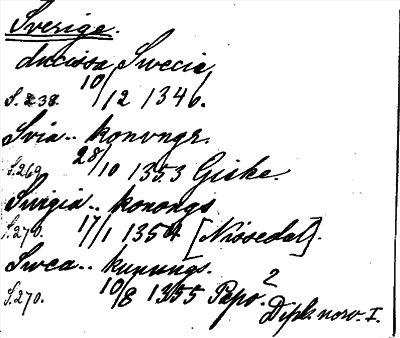 Sverige.
ducissa Swecie
S. 238. 10/12 1346.
Svia.. konongr.
S. 269. 28/10 1353 Giske.
Swigia.. konongs
S. 270. 17/1 1354 [Nissedal].
Swea.. kunungs.
S. 270. 10/8 1355 Papo.²
Dipl. norv. I.